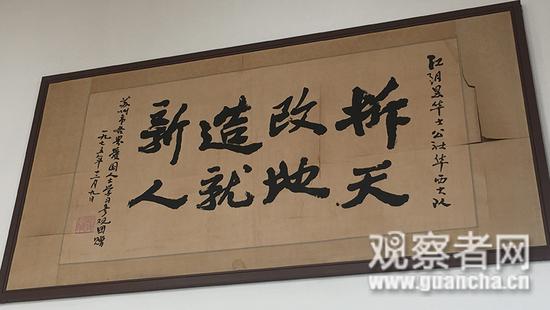 江阴县华士公社华西大队
拆天
改地
造就
新人
苏州市各界爱国人士学习参观团赠
一九七五年三月九日
观察者网
www.guancha.cn